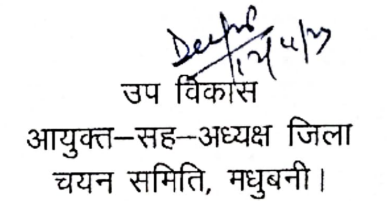 उप विकास
आयुक्त–सह–अध्यक्ष जिला
चयन समिति, मधुबनी।